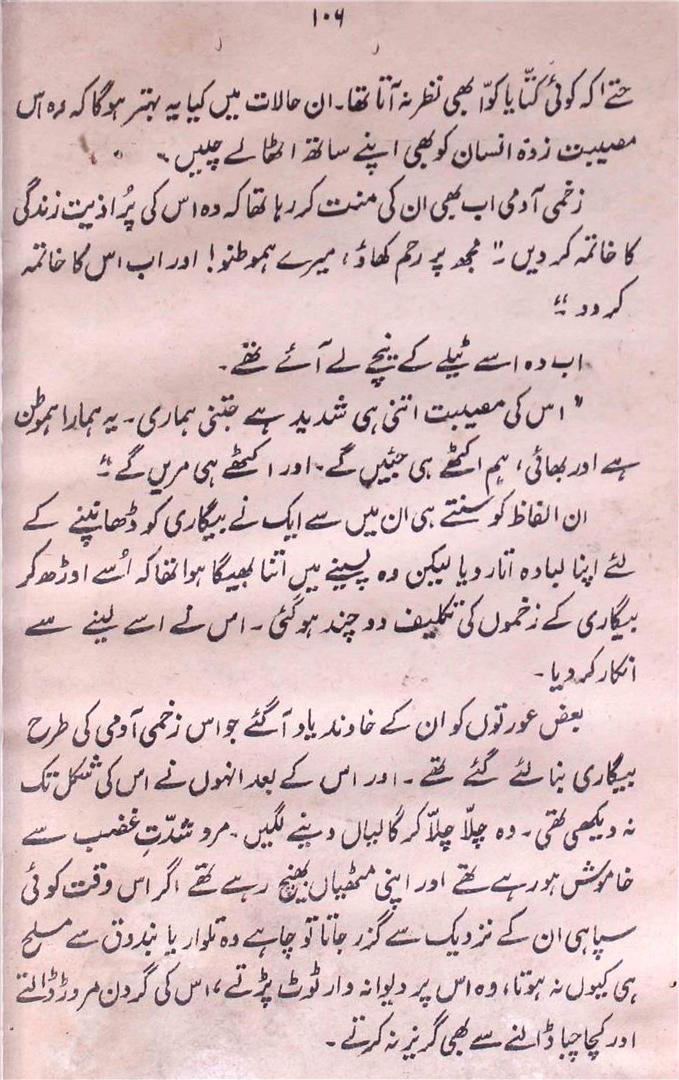 ۱۰۶
حتےٰ کہ کوئی کتّا یا کوّا بھی نظر نہ آتا تھا۔ ان حالات میں کیا یہ بہتر ہوگا کہ وہ اس
مصیبت زدہ انسان کو بھی اپنے ساتھ اٹھا لے چلیں۔
زخمی آدمی اب بھی ان کی منت کر رہا تھا کہ وہ اس کی پُر اذیت زندگی
کا خاتمہ کر دیں۔" مجھ پر رحم کھاؤ، میرے ہموطنو! اور اب اس کا خاتمہ
کر دو۔"
اب وہ اسے ٹیلے کے نیچے لے آئے تھے۔
"اس کی مصیبت اتنی ہی شدید ہے جتنی ہماری۔ یہ ہمارا ہموطن
ہے اور بھائی، ہم اکٹھے ہی جئیں گے۔ اور اکٹھے ہی مریں گے۔"
ان الفاظ کو سنتے ہی ان میں سے ایک نے بیگاری کو ڈھانپنے کے
لئے اپنا لبادہ اتار دیا لیکن وہ پسینے میں اتنا بھیگا ہوا تھا کہ اُسے اوڑھ کر
بیگاری کے زخموں کی تکلیف دو چند ہو گئی۔ اس نے اسے لینے سے
انکار کر دیا۔
بعض عورتوں کو ان کے خاوند یاد آ گئے جو اس زخمی آدمی کی طرح
بیگاری بنا لئے گئے تھے۔ اور اس کے بعد انہوں نے اس کی شکل تک
نہ دیکھی تھی۔ وہ چلّا چلّا کر گالیاں دینے لگیں۔ مرد شدّتِ غضب سے
خاموش ہو رہے تھے اور اپنی مٹھیاں بھینچ رہے تھے اگر اس وقت کوئی
سپاہی ان کے نزدیک سے گزر جاتا تو چاہے وہ تلوار یا بندوق سے مسلح
ہی کیوں نہ ہوتا، وہ اس پر دیوانہ وار ٹوٹ پڑتے، اس کی گردن مروڑ ڈالتے
اور کچا چبا ڈالنے سے بھی گریز نہ کرتے۔